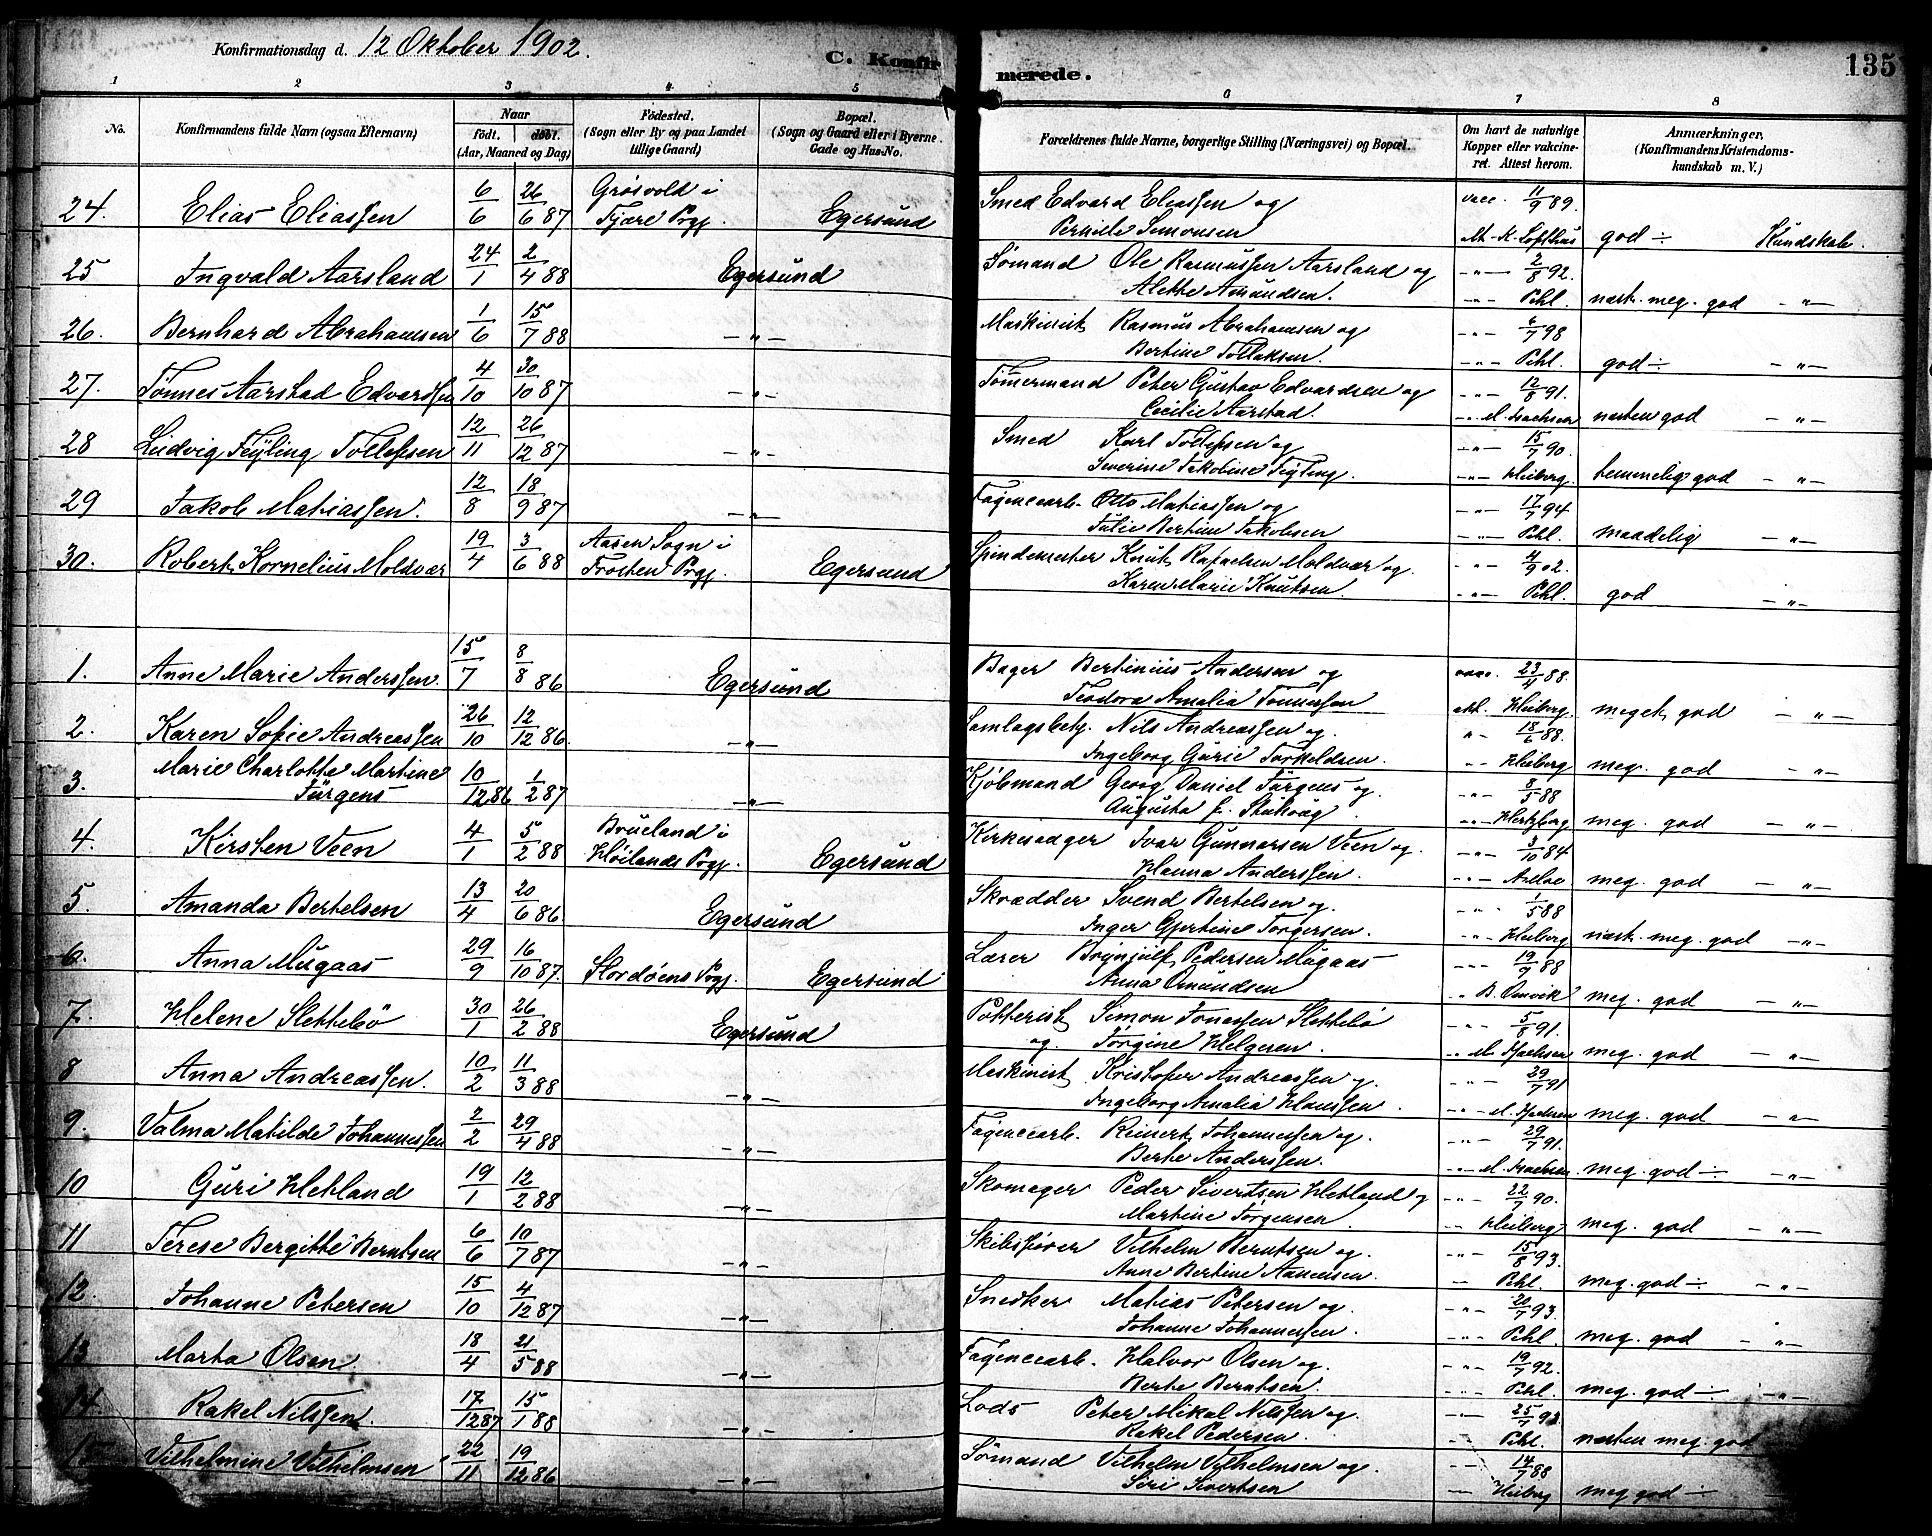 Konfirmationsdag d. 12 Oktober 1902.
C. Konfirmerede.
135
1 2 3 4 5 6 7 8
No.
Konfirmandens fulde Navn (ogsaa Efternavn)
Naar
født. døbt.
(Aar, Maaned og Dag)
Fødested.
(Sogn eller By og paa Landet
tillige Gaard)
Bopæl.
(Sogn og Gaard eller i Byerne
Gade og Hus-No.
Forældrenes fulde Navne, borgerlige Stilling (Næringsvei) og Bopæl.
Om havt de naturlige
Kopper eller vakcine-
ret. Attest herom.
Anmærkninger,
(Konfirmandens Kristendoms-
kundskab m. V.)
24. Elias Eliassen 6/6 26/6 87 Grøsvold i
Fjære Prgj. Egersund Smed Edvard Eliassen og vacc. 11/9 89.
Pernile Simonsen M. K. Lofthus god ÷ Kundskab.
25 Ingvald Aarsland 24/1 2/4 88 Egersund Sømand Ole Rasmussen Aarsland og -"- 2/8 92.
Alette Amundsen. -"- Pihl. næst. meg. god -"-
26. Bernhard Abrahamsen 1/6 15/7 88 -"- Maskinist Rasmus Abrahamsen og -"- 6/7 98
Bertine Tollaksen. -"- Pihl. god ÷ -"-
27. Tønnes Aarstad Edvardsen 4/10 30/10 87 -"- Tømermand Peter Gustav Edvardsen og -"- 12/8 91.
Cecilie Aarstad. -"- M. Isachsen næsten god -"-
28 Ludvig Fejling Tollefsen 12/11 26/12 87 -"- Smed Karl Tollefsen og -"- 15/7 90.
Severine Jakobine Fejling. -"- Heiberg. temmelig god -"-
29 Jakob Matiassen. 12/8 18/9 87 -"- Fagencearb. Otto Matiassen og -"- 17/7 94
Julie Bertine Jakobsen -"- Pihl. maadelig -"-
30. Robert Kornelius Moldvær 19/4 3/6 88 Aasen Sogn i
Frosten Prgj. Egersund Spindemester Knut Rafaelsen Moldvær og. -"- 4/9 02.
Karen Marie Knutsen. -"- Pihl. god -"-
1. Anne Marie Anderssen. 15/7 8/8 86 Egersund Bager Bertinius Andersen og vacc. 23/4 88.
Teodora Amalia Tønnessen att. Heiberg. meget god -"-
2. Karen Sofie Andreassen 26/10 12/12 86. -"- Samlagsbety. Nils Andreassen og. -"- 18/6 88.
Ingeborg Gurie Torkeldsen. -"- Heiberg meg. god -"-
3. Marie Charlotte Martine
Jürgens 10/12 86 1/2 87 -"- Kjøbmand Georg Daniel Jürgens og. -"- 8/5 88
Augusta f. -"- Hertzberg meg. god -"-
4. Kirsten Veen 4/1 5/2 88 Brueland i
Høilands Prgj. Egersund Kirkesanger Ivar Gunnarsen Veen og. -"- 3/10 84
Hanna Anderssen. -"- meg. god -"-
5. Amanda Bertelsen 13/4 20/6 86. Egersund Skrædder Svend Bertelsen og. -"- 1/5 88
Inger Gjertine Torgersen. -"- Heiberg næst. meg. god -"-
6. Anna Mugaas 29/9 16/10 87. Stordøens Prgj. Egersund Lærer Brynjulf Pedersen Mugaas -"- 19/9 88
Anna Omundsen " B. Omvik meg. god -"-
7. Helene Slettebø 30/1 26/2 88 Egersund Potterist Simon Jonassen Slettebø -"- 5/8 91.
og. Jørgine Helgeren. -"- M. Isachsen meg. god -"-
8 Anna Andreassen. 10/2 11/3 88 -"- Maskinist Kristofer Andreassen og. -"- 29/7 91
Ingeborg Amalia Hanssen. -"- M. Isachsen meg. god -"-
9. Valma Matilde Johannessen 2/2 29/4 88 -"- Fagencearb. Reinert Johannessen og. -"- 29/7 91.
Berte Anderssen. -"- M. Isachsen. meg. god ÷ -"-
10 Guri Hetland 19/1 12/2 88 -"- Skomager Peder Sivertsen Hetland og -"- 22/7 90.
Martine Jørgensen. -"- Heiberg meg. god -"-
11 Terese Bergitte Berntsen 6/6 10/7 87 -"- Skibsfører Vilhelm Berntsen og. -"- 15/8 93.
Anne Bertine Aanensen. -"- Pihl. meg. god ÷ -"-
12. Johanne Petersen 15/10 4/12 87 -"- Snedker Matias Petersen og. -"- 20/7 93.
Johanne Johannessen. -"- Pihl. meg. god -"-
13 Marta Olsen. 18/4 21/5 88 -"- Fagencearb. Halvor Olsen og. -"- 19/7 92.
Berte Berntsen. -"- Pihl. meg. god ÷ -"-
14. Rakel Nilssen. 17/12 87 15/1 88 -"- Lods Peter Mikal Nilssen og. -"- 25/7 93
Rakel Pedersen. -"- Pihl. næsten meg. god
15. Vilhelmine Vilhelmsen 22/11 19/12 86 -"- Sømand Vilhelm Vilhelmsen og. -"- 14/7 88
Siri Sivertsen -"- Heiberg meg god ÷